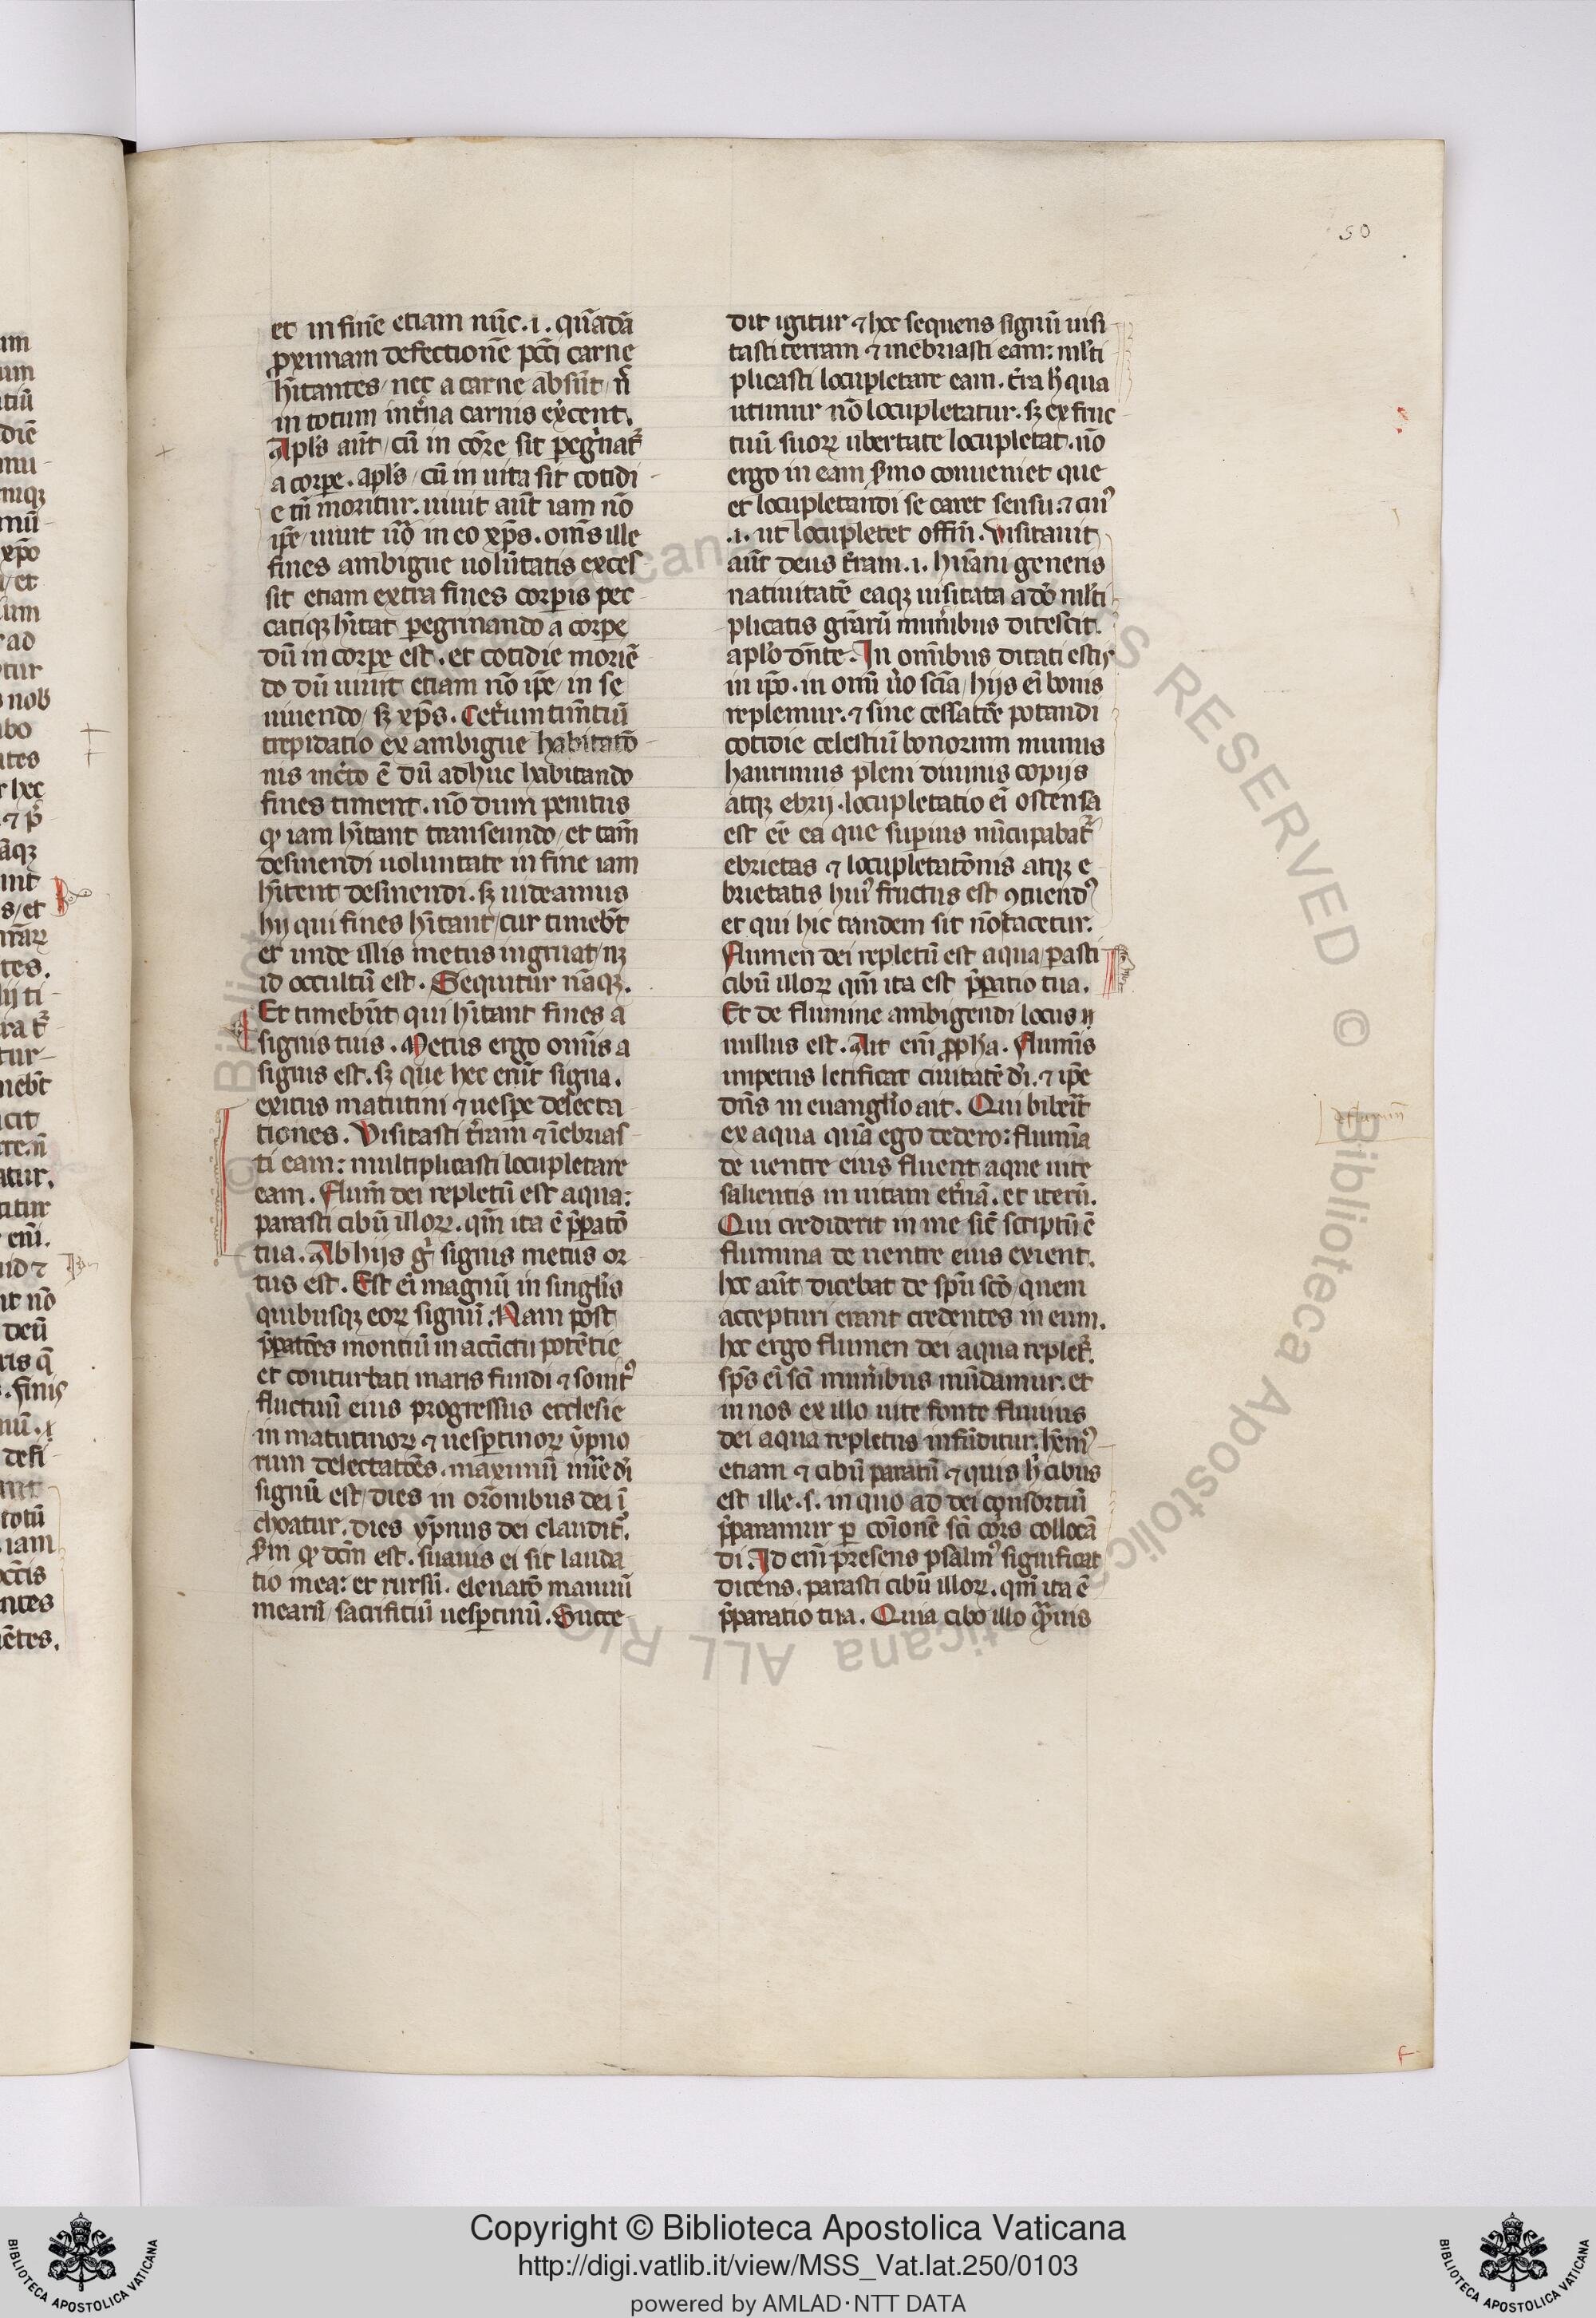 50
et in fine etiam nūc .i. quādā
ꝓximam defectionē pcc̄i carne
hītantes / nec a carne absūt / n̄
in totum int̄na carnis ex̄cent.
Apl̄s aūt / cū in cor̄e sit peg̃natᷣ
a corpe . apl̄s / cū in uita sit cotidi-
e tn̄ moritur . uiuit aūt iam nō
ip̄e / uiuit ūo in eo xp̄s . om̄s ille
fines ambigue uolūtatis exces-
sit etiam extra fines corporis pec-
catiqꝫ hītat pegrinando a corpe
dū in corpe est . et cotidie moriē-
do dū uiuit etiam nō ip̄e / in se
uiuendo / sꝫ xp̄s . Cet̄um timētiū
trepidatio ex ambigue habitatō-
nis inc̄to ē dū adhuc habitando
fines timent . nō dum penitus
qꝫ iam hītant transeundo / et tam̄
desinendi uoluntate in fine iam
hītent desinendi . sꝫ uideamus
hij qui fines hītant / cur timeb̄t
et unde illis metus ingruat / nꝫ
id occultū est . Sequitur nāqꝫ .
Et timebūt qui hītant fines a
signis tuis . Metus ergo om̄is a
signis est . sꝫ que hec erūt signa .
exitus matutini ⁊ uespe delecta-
tiones . Visitasti t̄ram ⁊ īebrias-
ti eam : multiplicasti locupletare
eam . Flum̄ dei repletū est aqua :
parasti cibū illoꝝ . qm̄ ita ē p̄paō
tua . Ab hijs g̊ signis metus or-
tus est . Est ei magnū in singl̄is
quibusqꝫ eoꝝ signū . Nam post
p̄patōes montiū in accīctu potētie
et conturbati maris fundi ⁊ sonitꝰ
fluctuū eius progressus ecclesie
in matutinoꝝ ⁊ uesptinoꝝ ypno-
rum delectatōes . maximū mīe dī
signū est / dies in or̄onibus dei ī-
choatur . dies yp̄nus dei claudit̄ .
Sm̄ qꝫ dcm̄ est . suauis ei sit lauda-
tio mea : et rursū . eleuatō manuū
mearū / sacrificiū uesptinū . Succe-
dit igitur ⁊ hec sequens signū uisi-
tasti terram ⁊ inebriasti eam : ml̄ti-
plicasti locupletare eam . t̄ra h̄ qua
utimur nō locupletatur . sꝫ ex fruc-
tuū suoꝝ ubertate locupletat . nō
ergo in eam ẜmo conueniet que
et locupletandi se caret sensu : ⁊ cuiꝰ
.i. ut locupletet offm̄ . Visitauit
aūt deus t̄ram .i. hūani generis
natiuitatē eaqꝫ uisitata a dō ml̄ti-
plicatis gr̄arū mun̄ibus ditescit .
aplō dn̄te . In om̄ibus ditati estis
in ip̄o . in om̄i ūo scīa / hijs ei bonis
replemur . ⁊ sine cessatōe potandi
cotidie celestiū bonorum munus
haurimus pleni diuinis copijs
atqꝫ ebrij . locupletatio ei ostensa
est eē ea que superius nūcupabatᷣ
ebrietas ⁊ locupletatōnis atqꝫ e-
brietatis huiꝰ fructus est ꝯtuendꝰ
et qui hic tandem sit nō tacetur .
Flumen dei repletū est aqua / pasti
cibū illoꝝ qm̄ ita est p̄patio tua .
Et de flumine ambigendi locus
nullus est . Ait eni ꝓph̄a . Flum̄is
impetus letificat ciuitatē dī . ⁊ ip̄e
dn̄s in euanglio ait . Qui bibeīt
ex aqua quā ego dedero : flumīa
de uentre eius fluent aque uite
salientis in uitam et̄nā . et iterū .
Qui crediderit in me sic̄ scriptū ē
flumina de uentre eius exient .
hec aūt dicebat de spū scō / quem
accepturi erant credentes in eum .
hec ergo flumen dei aqua repletᷣ .
sp̄s ei scī mun̄ibus mūdamur . et
in nos ex illo uite fonte fluuius
dei aqua repletus infūditur . hēmꝰ
etiam ⁊ cibū paratū ⁊ quis h̄ cibus
est ille .s. in quo ad dei consortiū
p̄paramur ꝑ coīonē scī cor̄s collocā-
di . Ad eni presens psalmꝰ significat
dicens . parasti cibū illoꝝ . qm̄ ita ē
p̄paratio tua . Quia cibo illo qᷓuis
© Biblioteca Apostolica Vaticana ALL RIGHTS RESERVED
Copyright © Biblioteca Apostolica Vaticana
http://digi.vatlib.it/view/MSS_Vat.lat.250/0103
powered by AMLAD·NTT DATA
BIBLIOTECA APOSTOLICA VATICANA
BIBLIOTECA APOSTOLICA VATICANA